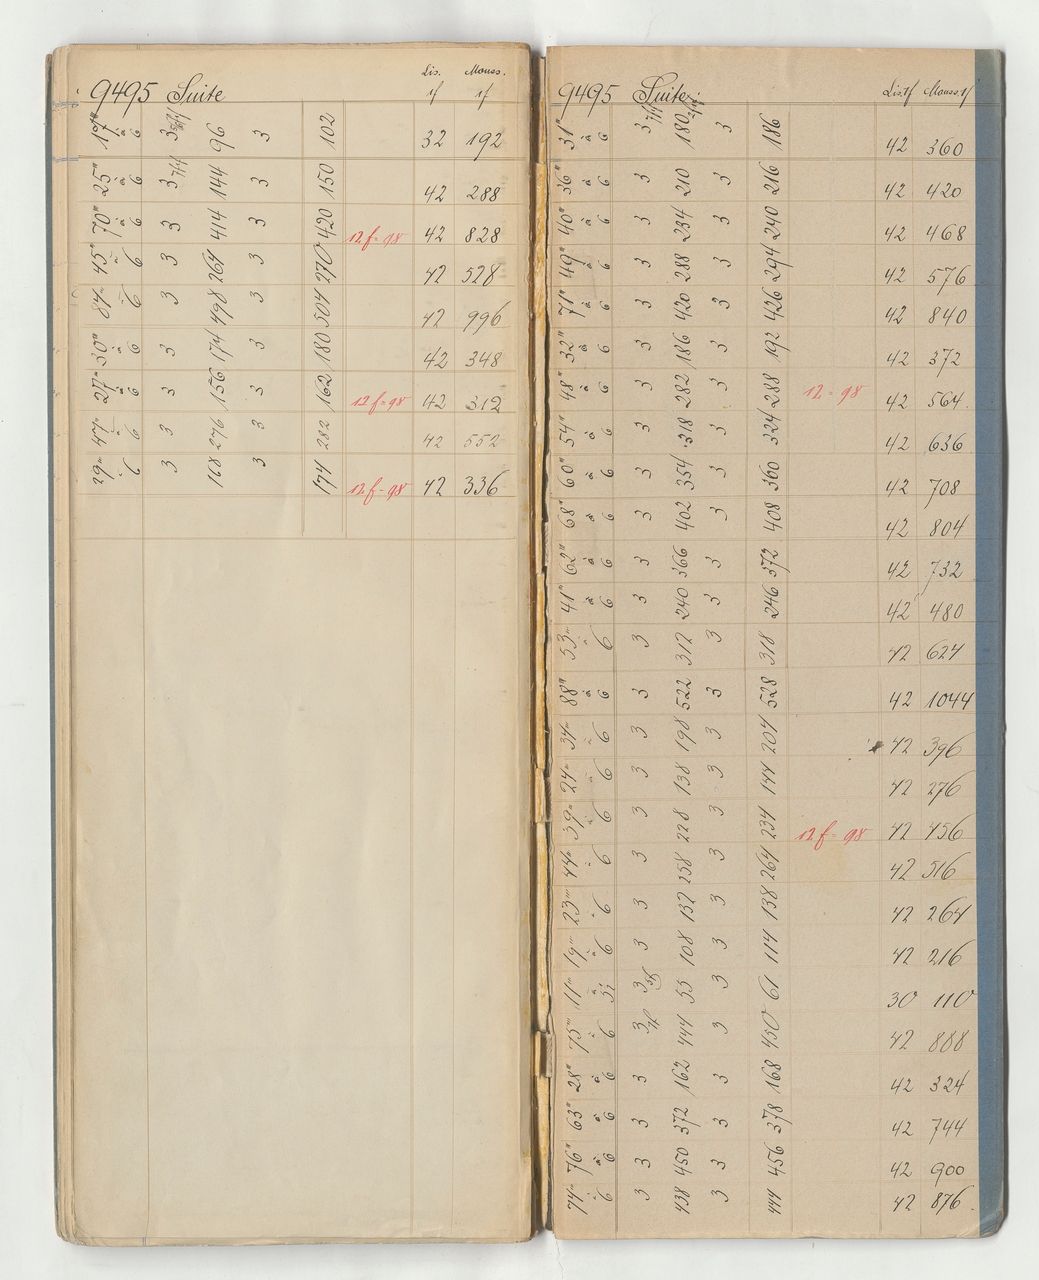 9495 Suite Lis. 1/f Mouss. 1/f
17" à 6 3 96 3 102 32 192
25" à 6 3 7/f 144 3 150 42 288
70" à 6 3 414 3 420 12 f= 98 42 828
45" à 6 3 264 3 270 42 528
84" à 6 3 498 3 504 42 996
30" à 6 3 174 3 180 42 348
27" à 6 3 156 3 162 12 f= 98 42 312
47" à 6 3 276 3 282 42 552
29" à 6 3 168 3 174 12 f= 98 42 336
9495 Suite. Lis. 1/f Mouss. 1/f
31" à 6 3 7/f 180 3 186 42 360
36" à 6 3 210 3 216 42 420
40" à 6 3 234 3 240 42 468
49" à 6 3 288 3 294 42 576
71" à 6 3 420 3 426 42 840
32" à 6 3 186 3 192 42 372
48" à 6 3 282 3 288 12 = 98 42 564.
54" à 6 3 318 3 324 42 636
60" à 6 3 354 3 360 42 708
68" à 6 3 402 3 408 42 804
62" à 6 3 366 3 372 42 732
41" à 6 3 240 3 246 42 480
53" à 6 3 312 3 318 42 624
88" à 6 3 522 3 528 42 1044
34" à 6 3 198 3 204 42 396
24" à 6 3 138 3 144 42 276
39" à 6 3 228 3 234 12 f= 98 42 456
44" à 6 3 258 3 264 42 516
23" à 6 3 132 3 138 42 264
19" à 6 3 108 3 114 42 216
11" à 3 5/f 55 3 61 30 110
75" à 6 3 7/f 444 3 450 42 888
28" à 6 3 162 3 168 42 324
63" à 6 3 372 3 378 42 744
76" à 6 3 450 3 456 42 900
74" à 6 3 438 3 444 42 876.